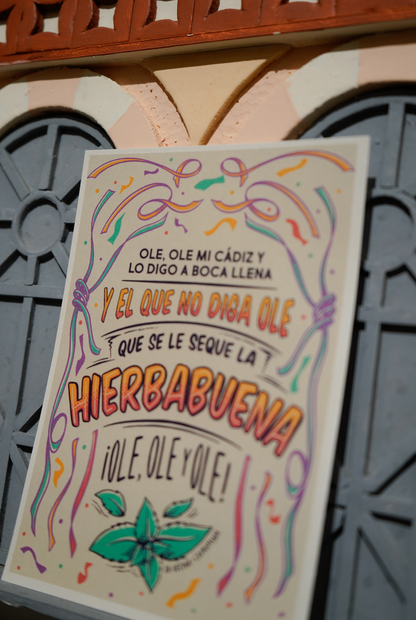 OLE, OLE MI CÁDIZ Y
LO DIGO A BOCA LLENA
Y EL QUE NO DIGA OLE
QUE SE LE SEQUE LA
HIERBABUENA
¡OLE, OLE Y OLE!